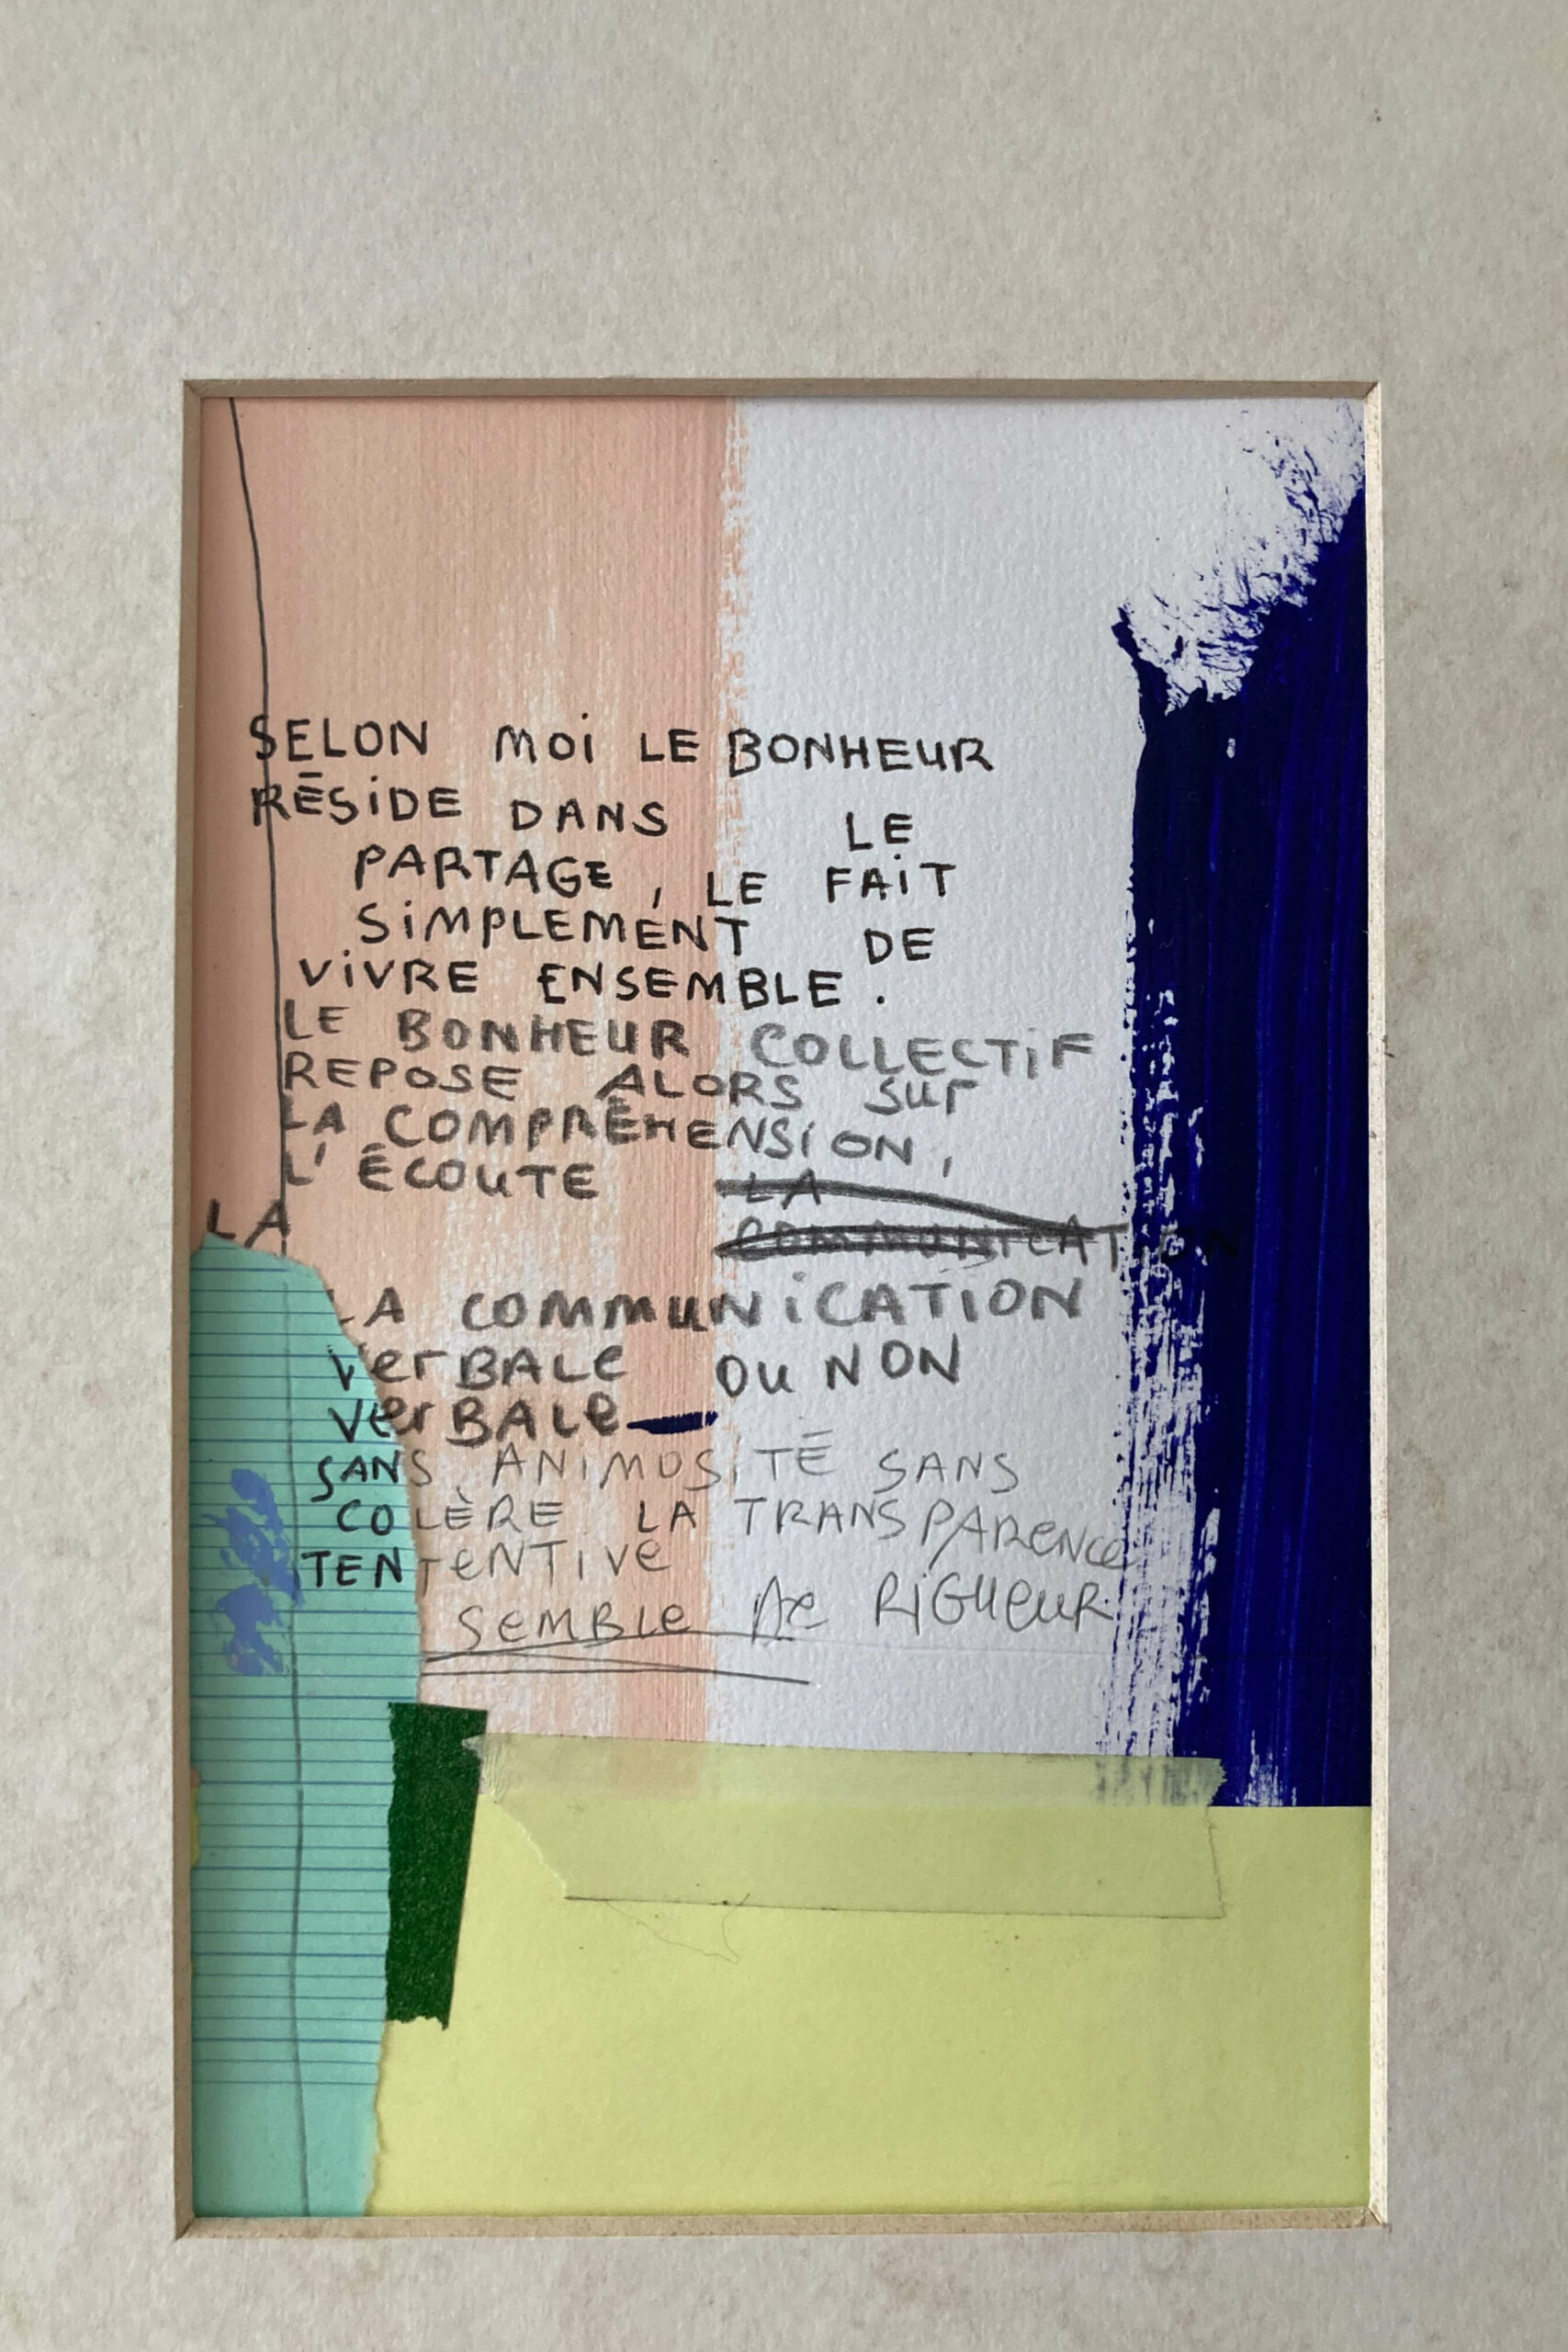 SELON MOI LE BONHEUR
RÉSIDE DANS LE
PARTAGE, LE FAIT
SIMPLEMENT DE
VIVRE ENSEMBLE.
LE BONHEUR COLLECTIF
REPOSE ALORS SUR
LA COMPRÉHENSION,
L'ÉCOUTE LA
COMMUNICATION
LA
LA COMMUNICATION
VERBALE OU NON
VERBALE
SANS ANIMOSITÉ SANS
COLÈRE LA TRANSPARENCE
TENTENTIVE
SEMBLE DE RIGUEUR